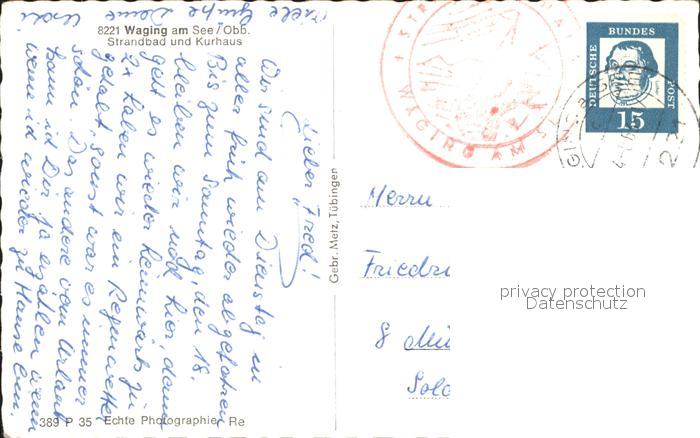 8221 Waging am See/Obb.
Strandbad und Kurhaus
Lieber Fred!
Wir sind am Dienstag in
aller früh wieder abgefahren
Bis zum Samstag, den 18.
bleiben wir noch hier, dann
geht es wieder heimwärts zu
2x haben wir ein Regenwetter
gehabt, sonst war es immer
schön. Das andere vom Urlaub
kann ich Dir ja erzählen wenn
wenn ich wieder zu Hause bin.
Viele Grüße Deine
Gebr. Metz, Tübingen
389 P 35 Echte Photographie Re
WAGING AM SEE
DEUTSCHE BUNDESPOST
15
Herrn
Friedri
8 Mü
privacy protection
Datenschutz